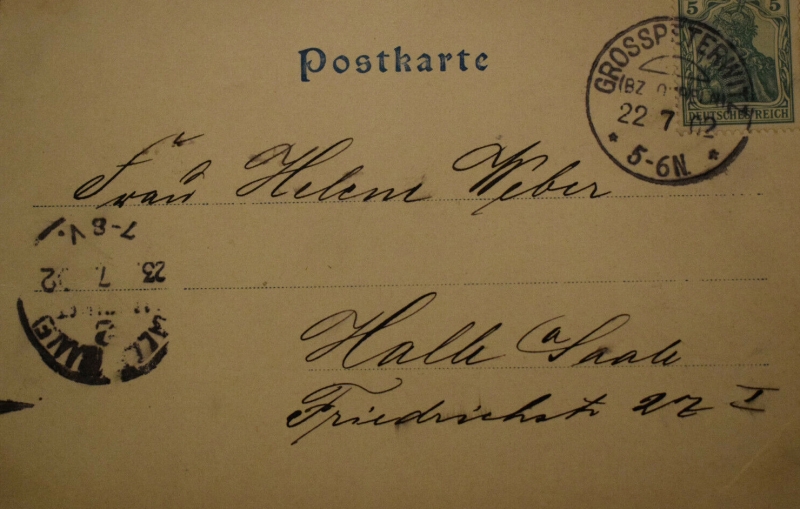 Postkarte
5 5
DEUTSCHES REICH
GROSSPETERWITZ
(BZ.
22 7 02
* 5-6N. *
Frau Helene Weber
7-8V.
23. 7 02
2
Halle a Saale
Friedrichstr 27 I